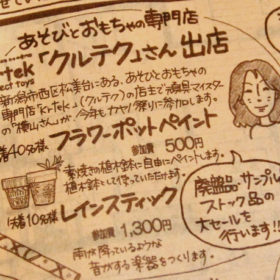 せてい
あそびとおもちゃの専門店
「クルテク」さん 出店
tek
ect toys
新潟市西区松美台にある、あそびとおもちゃの
専門店"krtek"(クルテク)の店主で
の横山さんが、今年もカヤノ祭りに参加します。
着40名様 フラワーポットペイント
参加費 500円
素焼きの植木鉢に自由にペイントします。
植木鉢として使っていただけます。
先着10名様 レインスティック
参加費 1,300円
雨が降っているような
音がする楽器をつくります。
廃盤品・サンプル
ストック品の
大セールを
行います!!